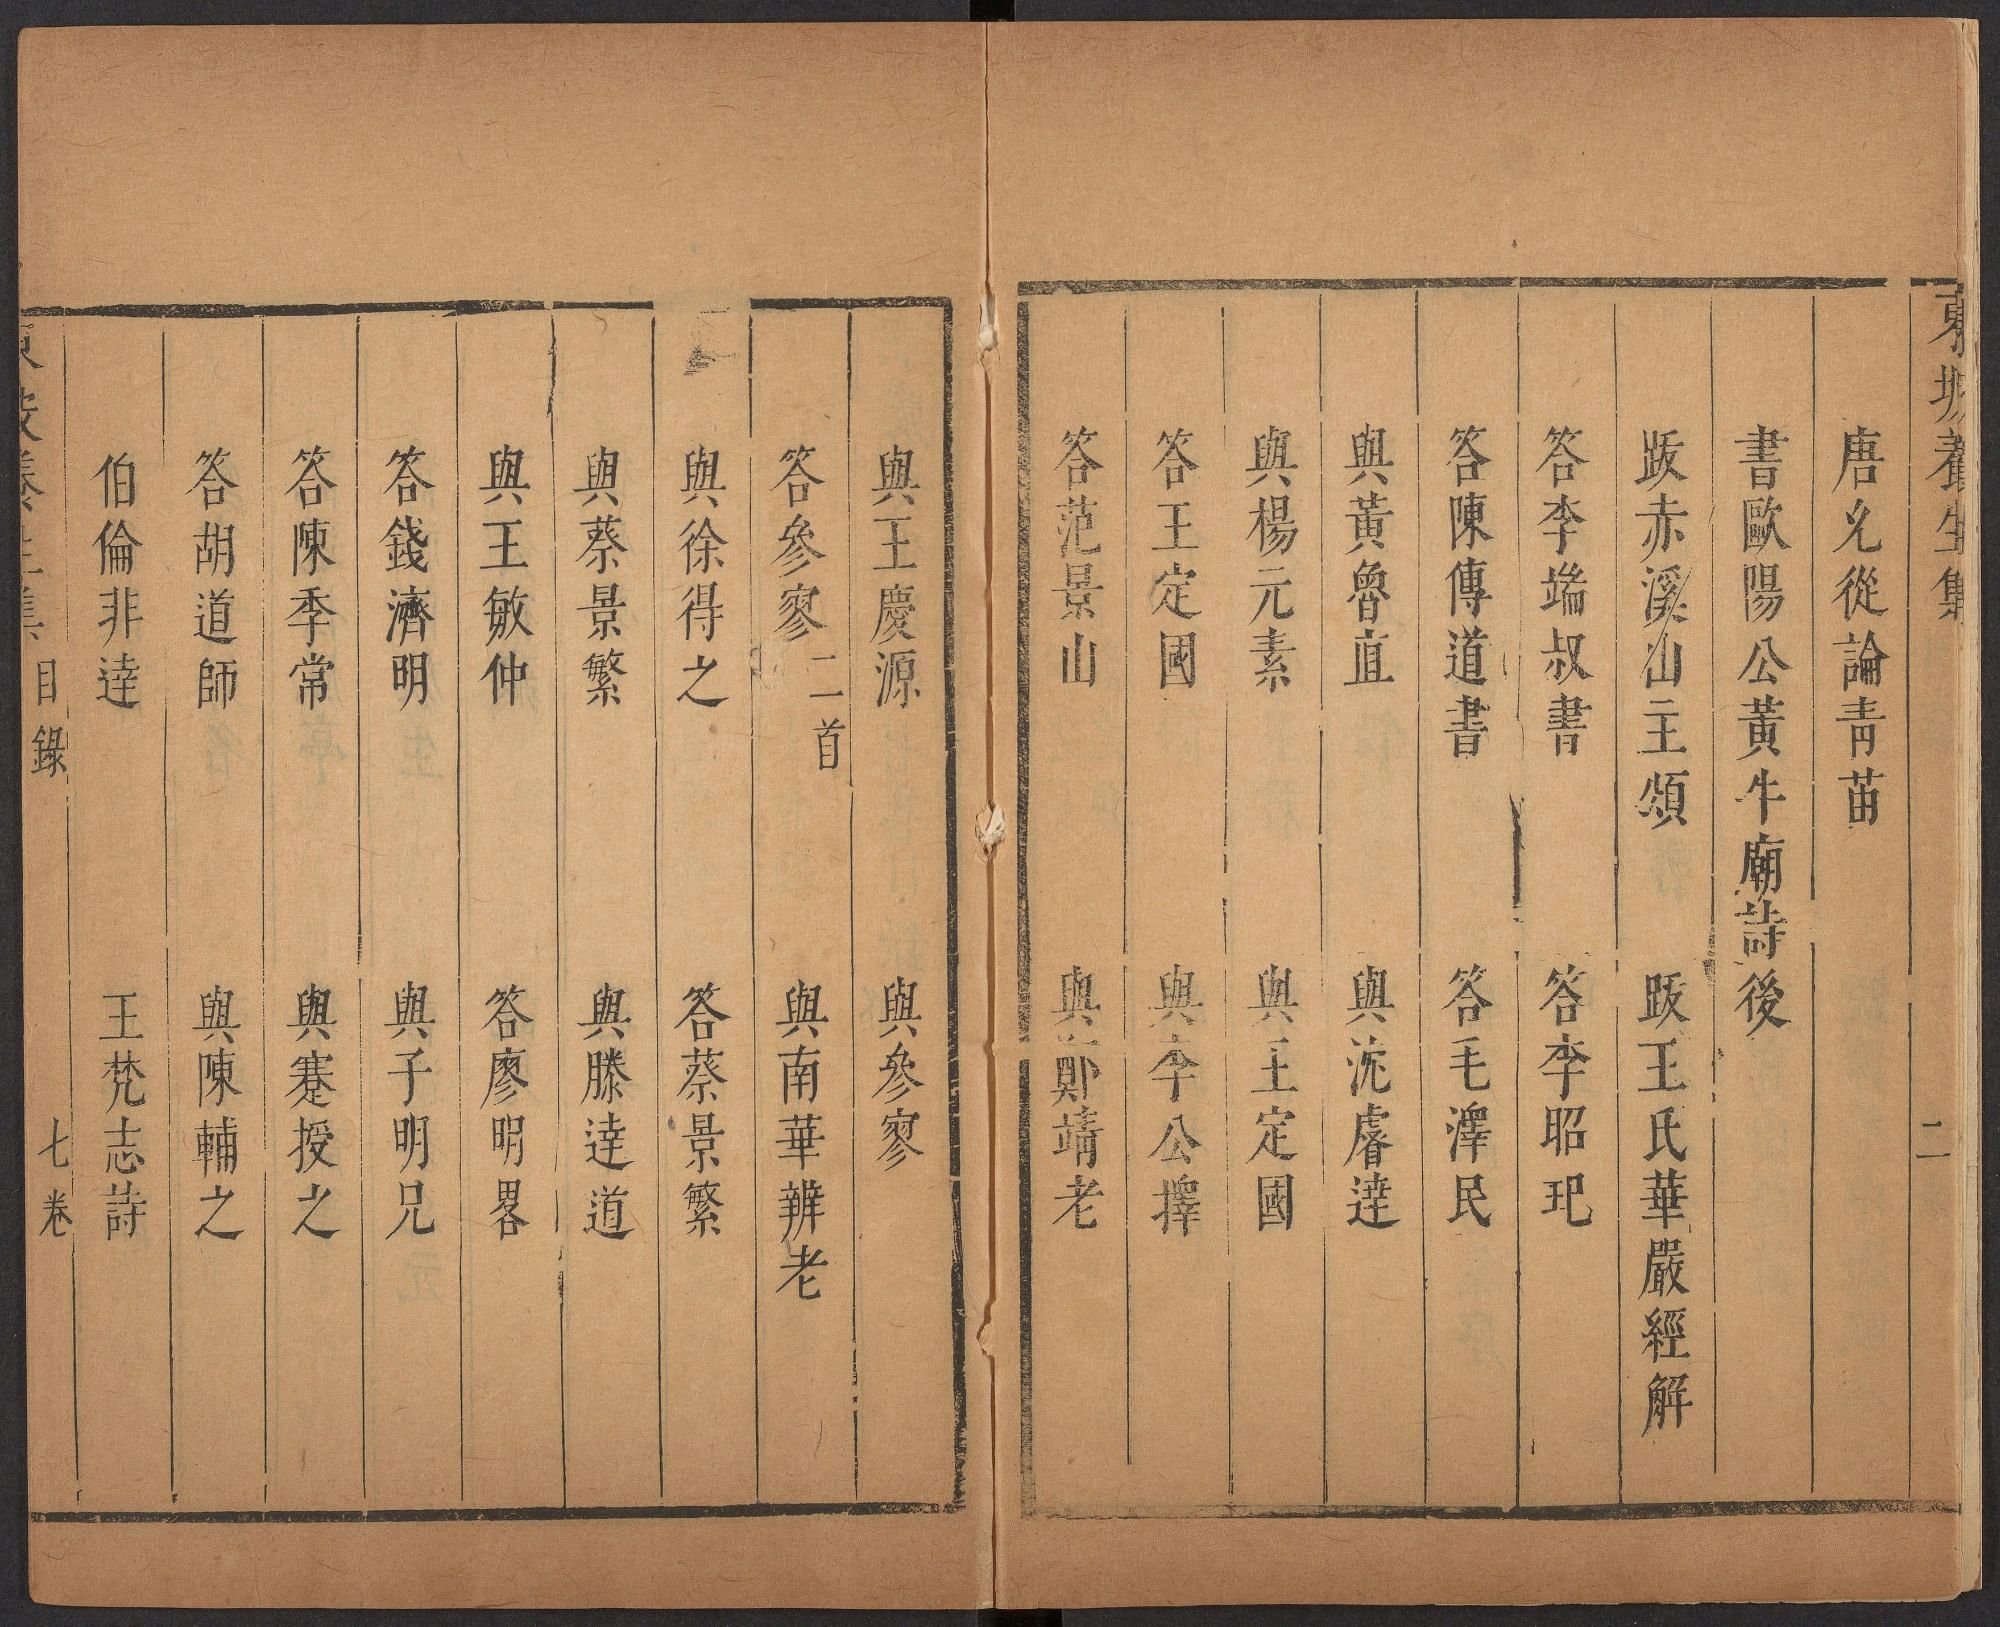 東坡養生集
二
唐允從論青苗
書歐陽公黃牛廟詩後
跋赤溪山主頌
跋王氏華嚴經解
答李端叔書
答李昭玘
答陳傳道書
答毛澤民
與黃魯直
與沈睿達
與楊元素
與王定國
答王定國
與李公擇
答范景山
與鄭靖老
與王慶源
與參寥
答參寥二首
與南華辨老
與徐得之
答蔡景繁
與蔡景繁
與滕達道
與王敏仲
答廖明畧
答錢濟明
與子明兄
答陳季常
與蹇授之
答胡道師
與陳輔之
伯倫非達
王梵志詩
東坡養生集
目錄
七卷